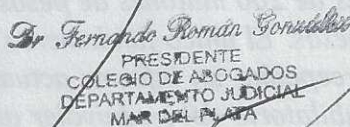 Dr Fernando Román González
PRESIDENTE
COLEGIO DE ABOGADOS
DEPARTAMENTO JUDICIAL
MAR DEL PLATA